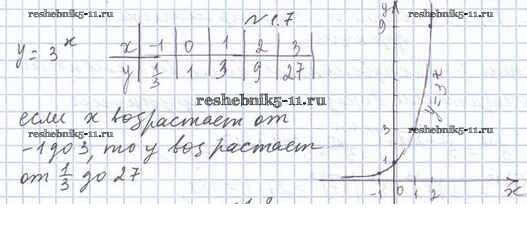 reshebnik5-11.ru
№1.7
y = 3^x
x | -1 | 0 | 1 | 2 | 3
y | 1/3 | 1 | 3 | 9 | 27
reshebnik5-11.ru
reshebnik5-11.ru
если x возрастает от
-1 до 3, то y возрастает
от 1/3 до 27
reshebnik5-11.ru
reshebnik5-11.ru
y
9
3
1
y=3^x
-1 0 1 2 x